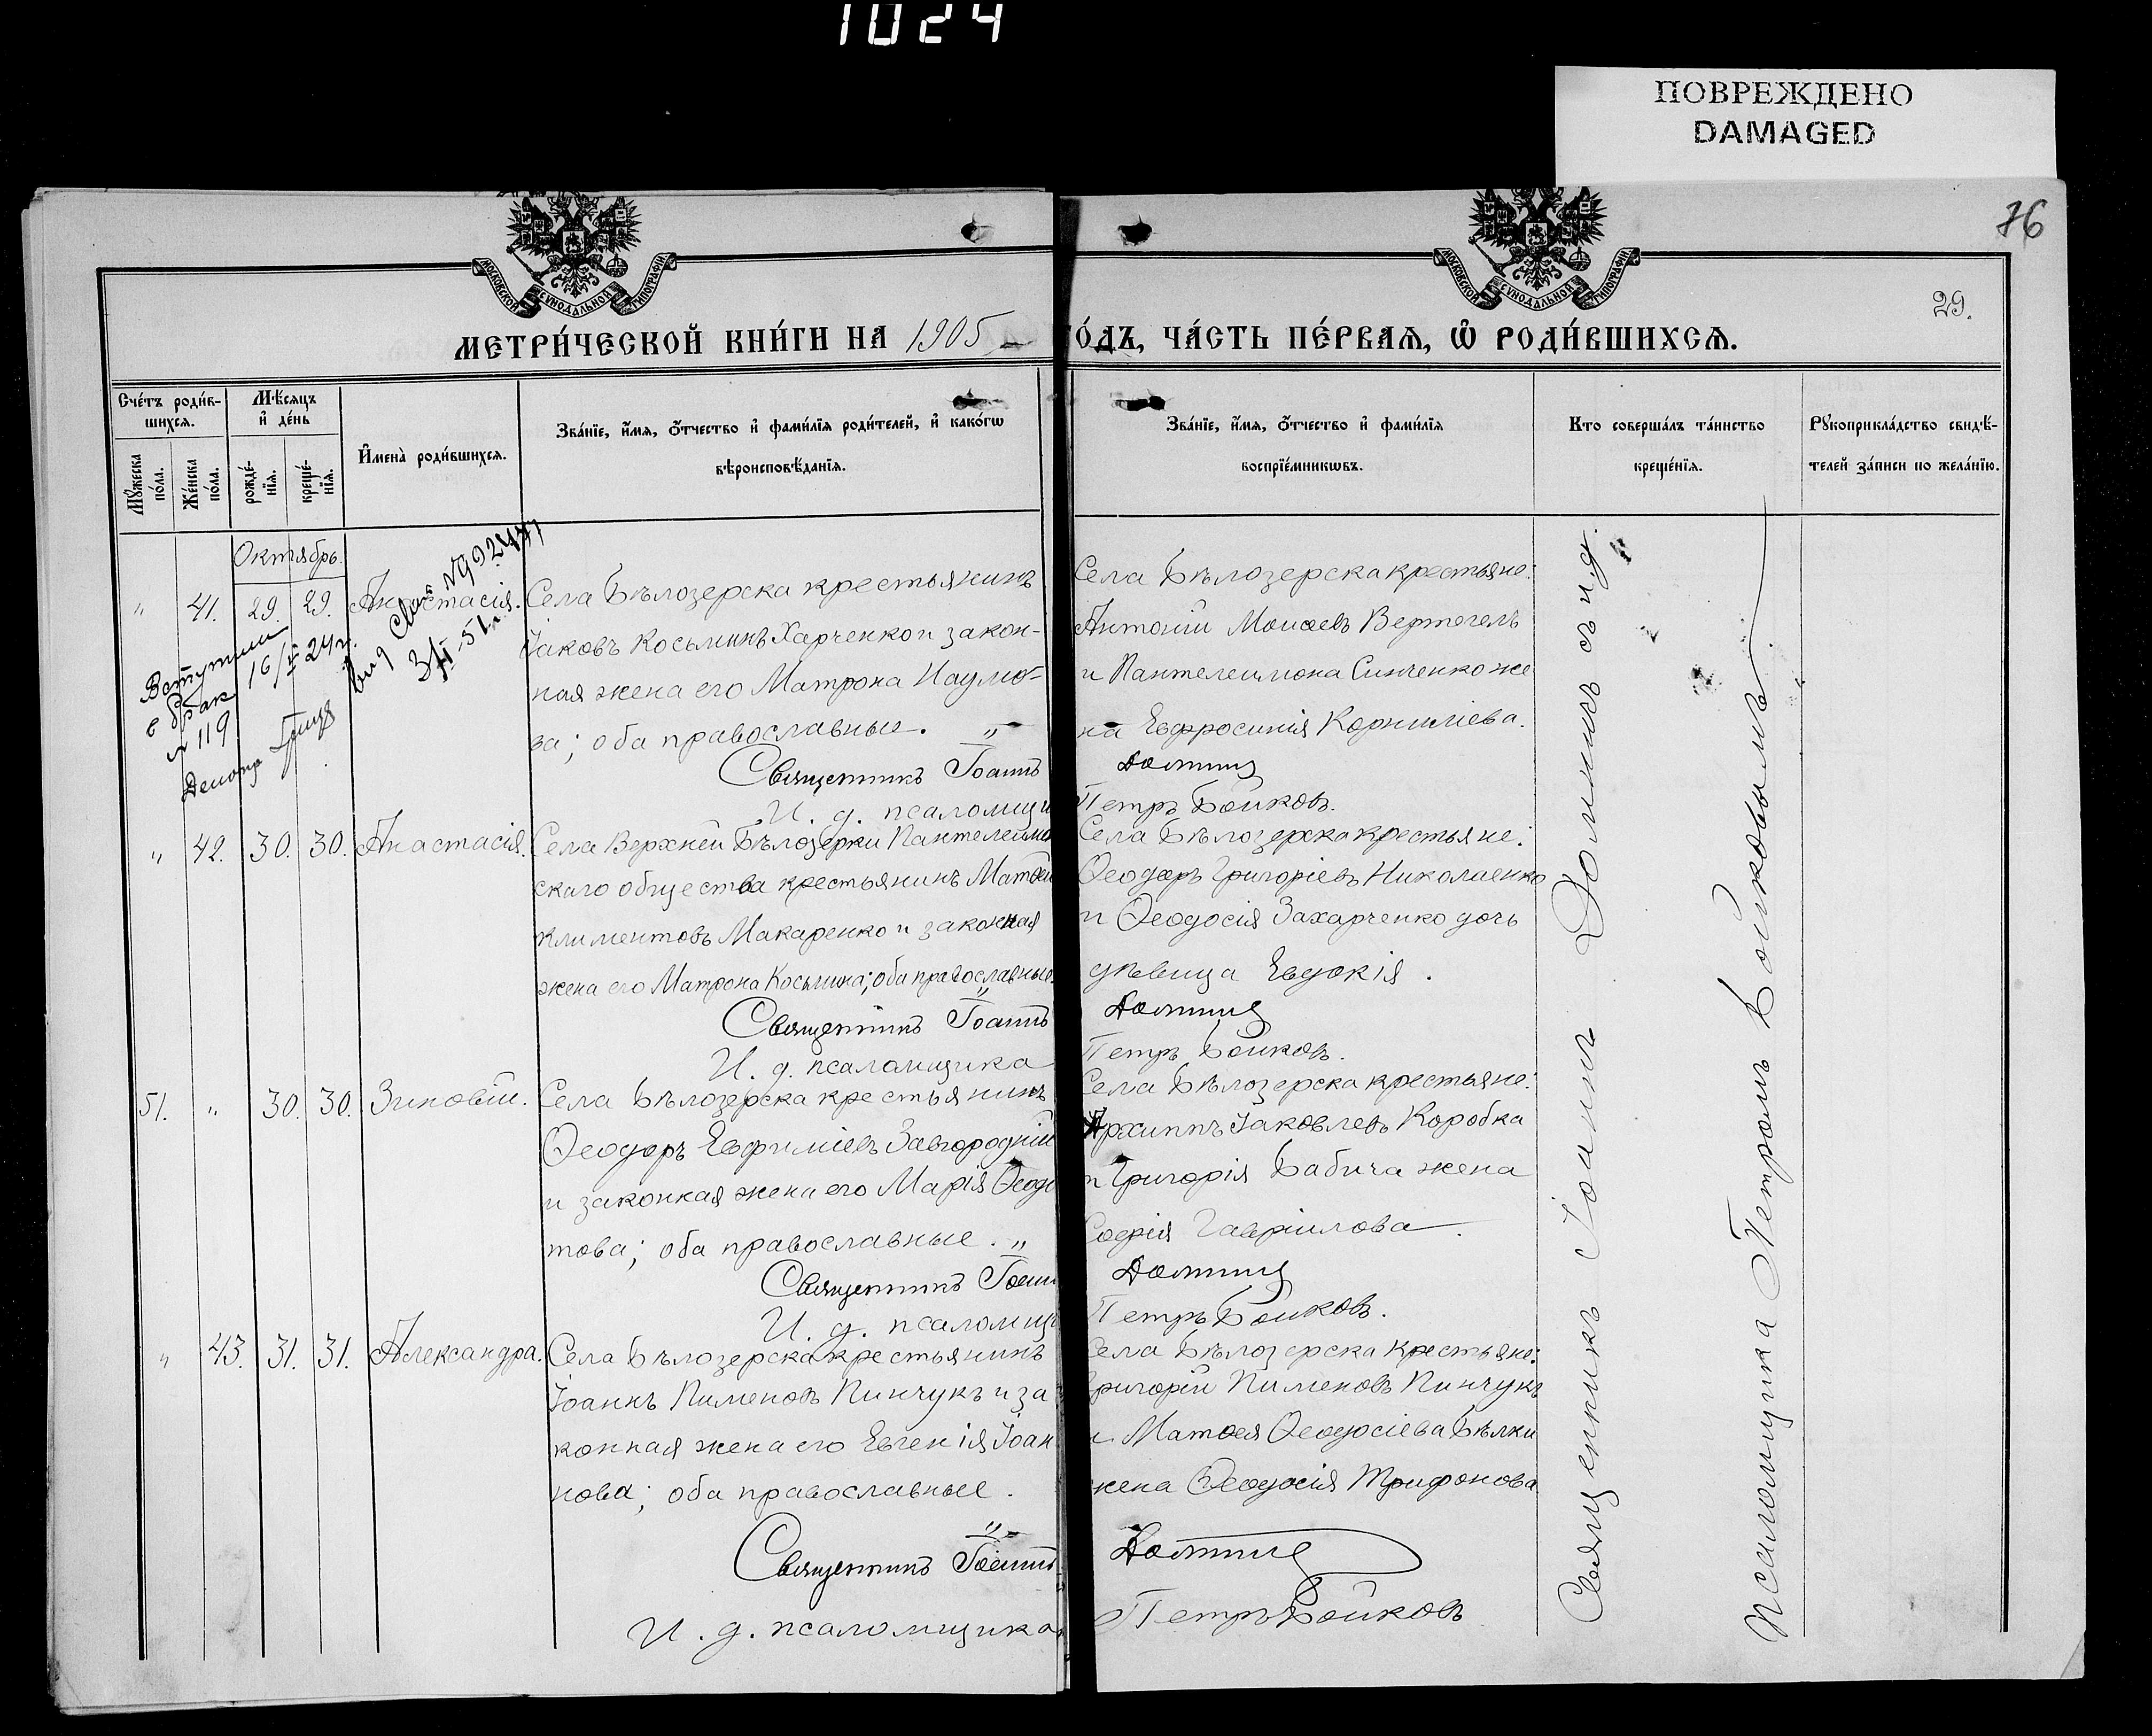 1024
ПОВРЕЖДЕНО
DAMAGED
76
29.
МОСКОВСКОЙ СѴНОДАЛЬНОЙ ТИПОГРАФІИ
МОСКОВСКОЙ СѴНОДАЛЬНОЙ ТИПОГРАФІИ
МЕТРИ́ЧЕСКОЙ КНИ́ГИ НА 1905 ГО́ДЪ, ЧА́СТЬ ПЕ́РВАѦ, Ѡ҆ РОДИ́ВШИХСѦ.
Сче́тъ роди́в-
шихсѧ.
Мꙋ́жеска по́ла.
Же́нска по́ла.
Мѣ́сяцъ
и҆ де́нь
рожде́-
нїѧ.
креще́-
нїѧ.
И҆мена̀ роди́вшихсѧ.
Зва́нїе, и҆́мѧ, о҆́тчество и҆ фами́лїѧ роди́телей, и҆ како́гѡ
вѣроисповѣ́данїѧ.
Зва́нїе, и҆́мѧ, о҆́тчество и҆ фами́лїѧ
воспрїе́мникѡвъ.
Кто соверша́лъ та́инство
креще́нїѧ.
Рꙋкоприкла́дство свидѣ́-
телей за́писи по жела́нїю.
Октябрь.
" 41. 29. 29. Анастасія.
Села Бѣлозерска крестьянинъ
Іаковъ Косьминъ Харченко и закон-
ная жена его Матрона Наумо-
ва; оба православные. "
Священникъ Іоаннъ
И. д. псаломщи
Села Бѣлозерска крестьяне:
Антоній Моисеевъ Вертегелъ
и Пантелеимона Синченко же
на Евфросинія Корниліева.
Долинъ
Петръ Бойковъ.
Вступили
в брак 16/V 24 г.
№ 119
выд Свид
3/II-51 г.
" 42. 30. 30. Анастасія.
Села Верхней Бѣлозерки Пантелеимон
скаго общества крестьянинъ Матѳей
Климентовъ Макаренко и законная
жена его Матрона Косьмина; оба православные.
"
Священникъ Іоаннъ
И. д. псаломщика
Села Бѣлозерска крестьяне:
Ѳеодоръ Григоріевъ Николаенко
и Ѳеодосія Захарченко дочь
дѣвица Евдокія.
Долинъ
Петръ Бойковъ.
51. " 30. 30. Зиновій.
Села Бѣлозерска крестьянинъ
Ѳеодоръ Евфиміевъ Завгородній
и законная жена его Марія Ѳеодо
това; оба православные. "
Священникъ Іоанн
И. д. псаломщи
Села Бѣлозерска крестьяне:
Архиппъ Іаковлевъ Коробка
и Григорія Бабича жена
Софія Гавріилова.
Долинъ
Петръ Бойковъ.
" 43. 31. 31. Александра.
Села Бѣлозерска крестьянинъ
Іоаннъ Пименовъ Пинчукъ и за
конная жена его Евгенія Іоан
нова; оба православные.
"
Священникъ Іоаннъ
И. д. псаломщика
Села Бѣлозерска крестьяне:
Григорій Пименовъ Пинчукъ
и Матѳея Ѳеодосіева Бѣлки
жена Ѳеодосія Трифонова
Долинъ
Петръ Бойковъ
Священникъ Іоаннъ Долинъ съ и. д.
псаломщика Петромъ Бойковымъ